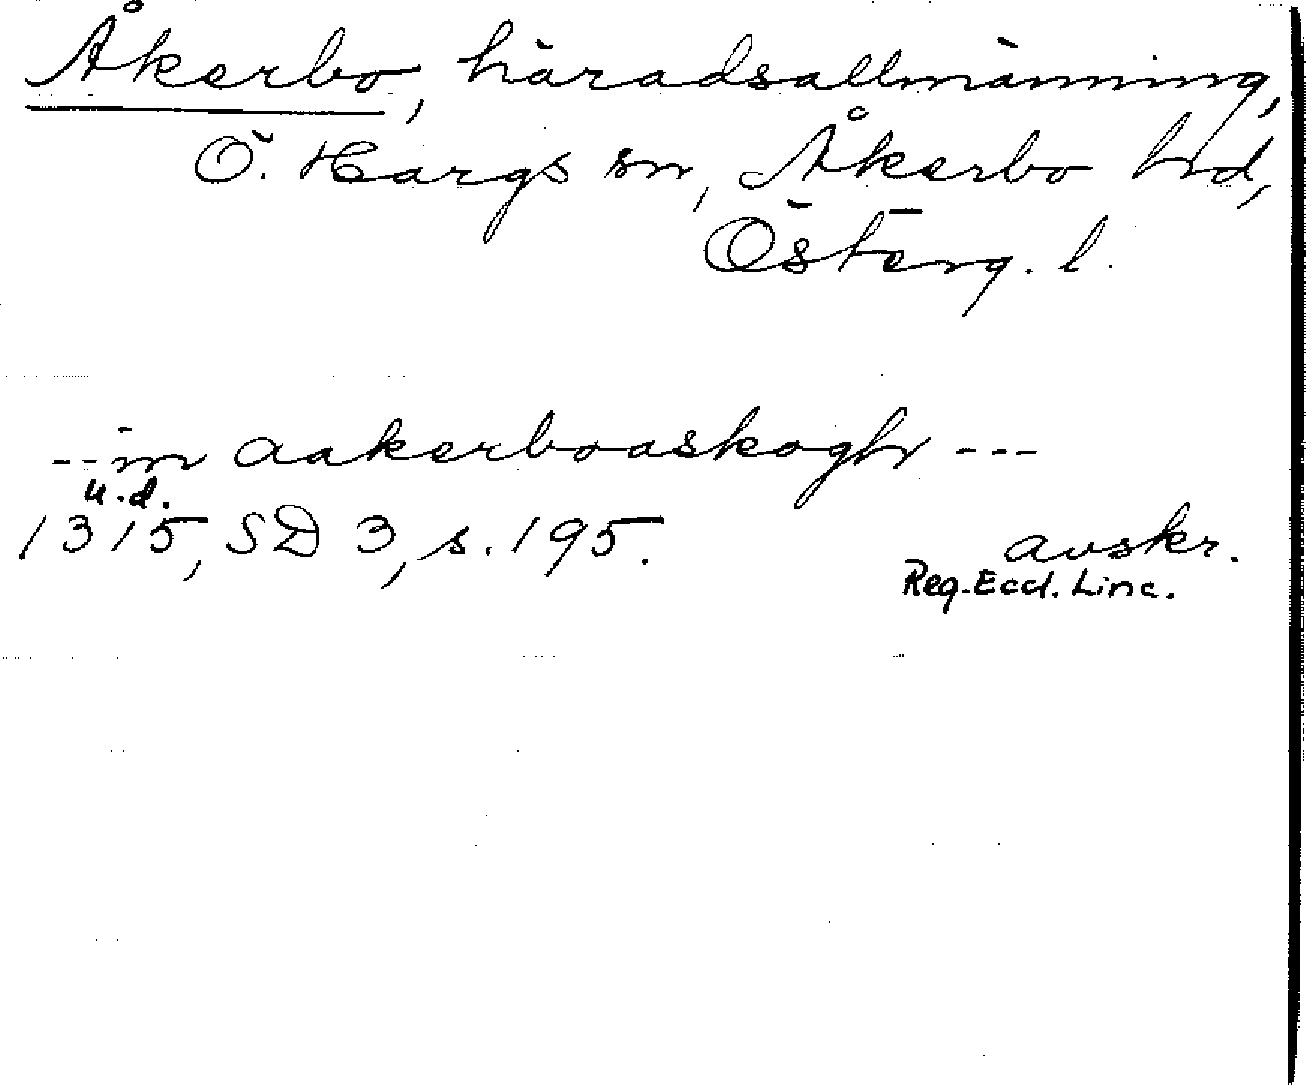 Åkerbo, häradsallmänning,
Ö. Hargs sn, Åkerbo hd,
Österg. l.
-- in aakerboaskoghr ---
u.d.
1315, SD 3, s. 195.
avskr.
Reg. Eccl. Linc.